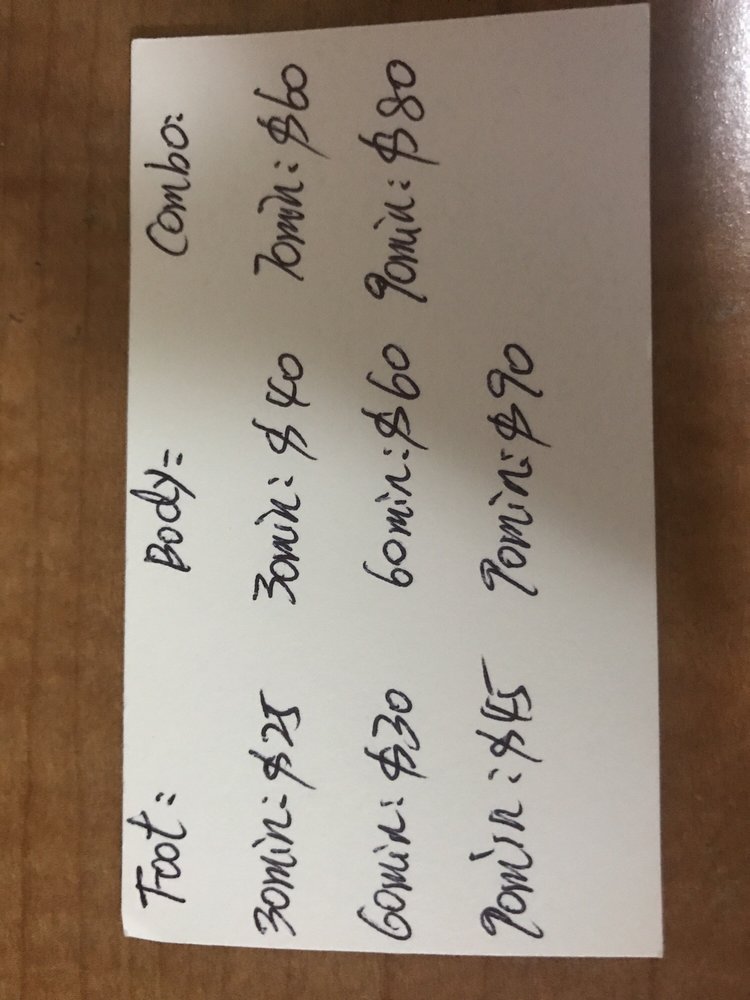 Foot: Body= Combo:
30min: $25 30min: $40 70min: $60
60min: $30 60min: $60 90min: $80
90min: $45 90min: $90